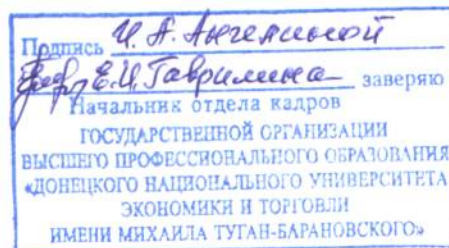 Подпись И. А. Ангелиной
Е.И. Гаврилина заверяю
Начальник отдела кадров
ГОСУДАРСТВЕННОЙ ОРГАНИЗАЦИИ
ВЫСШЕГО ПРОФЕССИОНАЛЬНОГО ОБРАЗОВАНИЯ
«ДОНЕЦКОГО НАЦИОНАЛЬНОГО УНИВЕРСИТЕТА
ЭКОНОМИКИ И ТОРГОВЛИ
ИМЕНИ МИХАИЛА ТУГАН-БАРАНОВСКОГО»